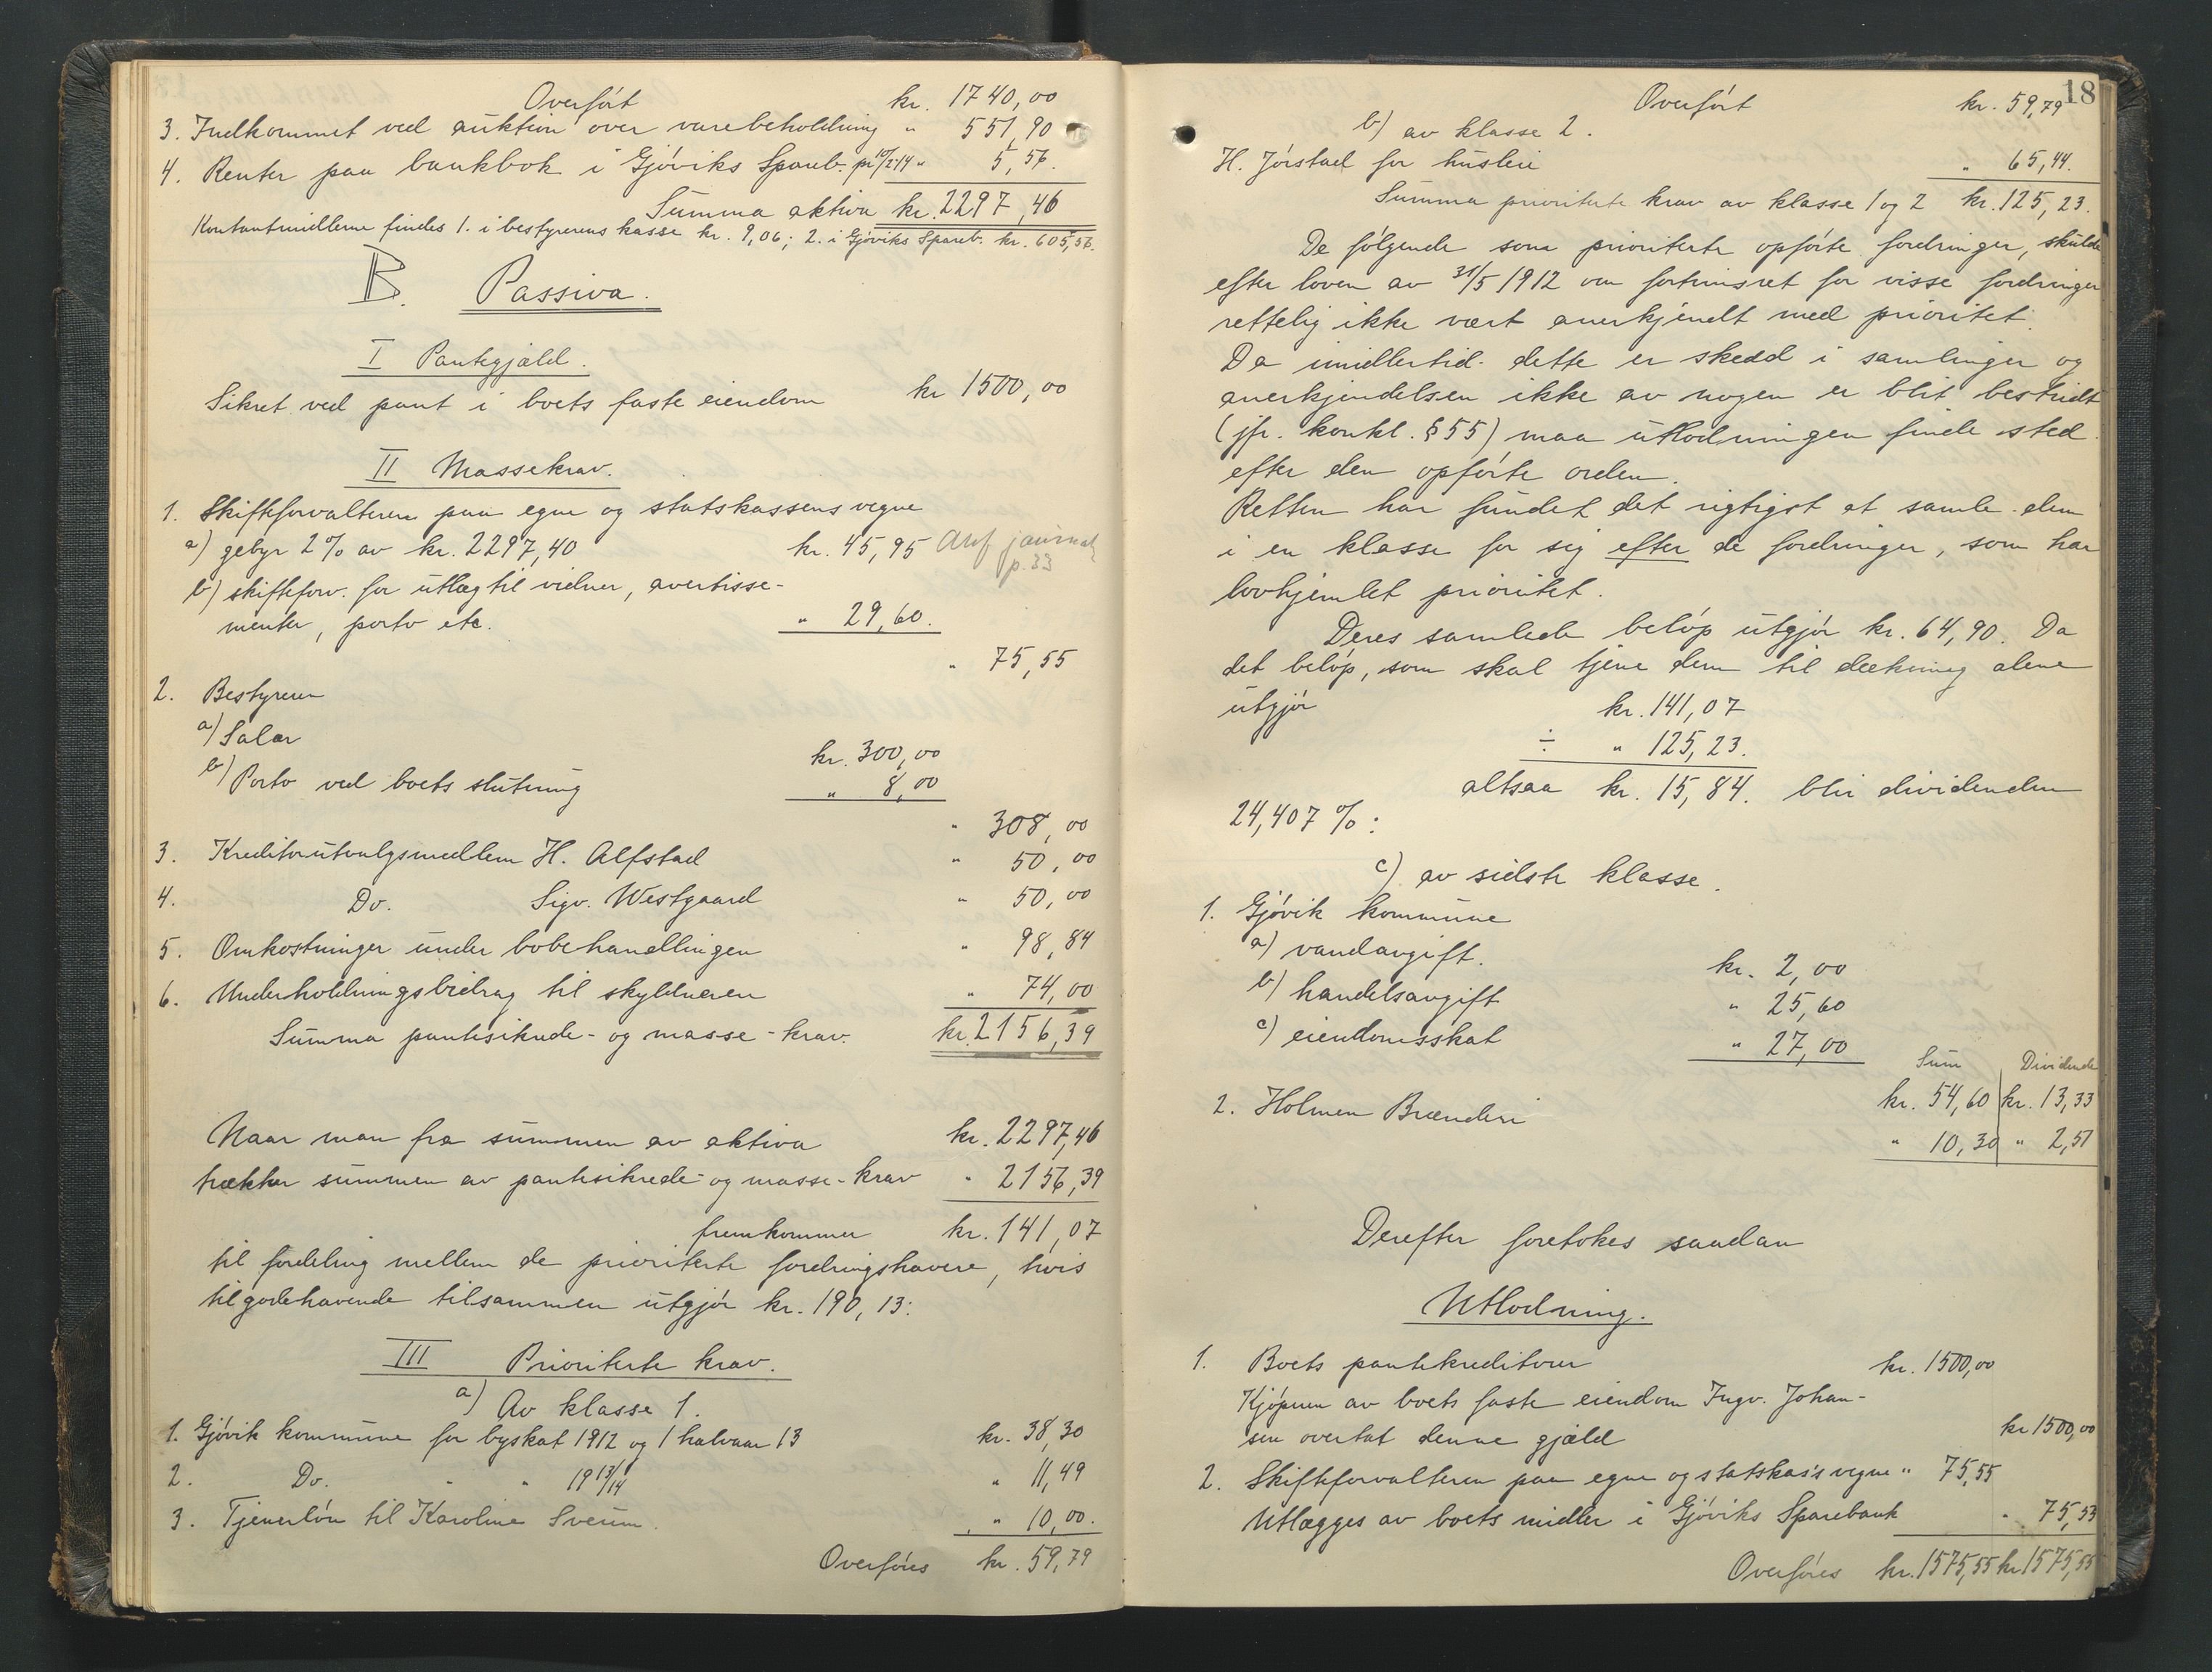 Overført kr. 1740,00
3. Indkommet ved auktion over varebeholdning " 551,90
4. Renter paa bankbok i Gjøviks Spareb. pr 10/2-14 " 5,56.
Summa aktiva kr. 2297,46
Kontantmidlerne findes 1. i bestyrerens kasse kr. 9,06; 2. i Gjøviks Spareb. kr. 605,56.
B. Passiva.
I Pantegjæld.
Sikret ved pant i boets faste eiendom kr 1500,00
II Massekrav.
1. Skifteforvalteren paa egne og statskassens vegne
a) gebyr 2% av kr. 2297,40 kr. 45,95 Anf journal
p. 33
b) skifteforv. for utlæg til vidner, avertisse-
menter, porto etc. " 29,60.
" 75,55
2. Bestyreren
a) Salær kr. 300,00
b) Porto ved boets slutning " 8,00
" 308,00
3. Kreditorutvalgsmedlem H. Alfstad " 50,00
4. Do. Sigv. Westgaard " 50,00
5. Omkostninger under bobehandlingen " 98,84
6. Underholdningsbidrag til skyldneren " 74,00
Summa pantesikrede- og masse-krav. kr. 2156,39
Naar man fra summen av aktiva kr. 2297,46
trækker summen av pantesikrede- og masse-krav " 2156,39
fremkommer kr. 141,07
til fordeling mellem de prioriterte fordringshavere, hvis
tilgodehavende tilsammen utgjør kr. 190,13:
III Prioriterte krav.
a) Av klasse 1.
1. Gjøvik kommune for byskat 1912 og 1 halvaar 13 kr. 38,30
2. Do. " " 1913/14 " 11,49
3. Tjenerløn til Karoline Sveum. " 10,00.
Overføres kr. 59,79
18
Overført kr. 59,79
b) av klasse 2.
H. Jørstad for husleie " 65,44.
Summa prioriterte krav av klasse 1 og 2 kr. 125,23.
De følgende som prioriterte opførte fordringer, skulde
efter loven av 31/5 1912 om fortrinsret for visse fordringer
rettelig ikke vært anerkjendt med prioritet.
Da imidlertid dette er skedd i samlinger og
anerkjendelsen ikke av nogen er blit bestridt
(jfr. konkl. § 55) maa utlodningen finde sted
efter den opførte orden.
Retten har fundet det rigtigst at samle dem
i en klasse for sig efter de fordringer, som har
lovhjemlet prioritet.
Deres samlede beløp utgjør kr. 64,90. Da
det beløp, som skal tjene dem til dækning alene
utgjør kr. 141,07
÷ " 125,23.
altsaa kr. 15,84. blir dividenden
24,407 %:
c) av sidste klasse.
1. Gjøvik kommune
a) vandavgift. kr. 2,00
b) handelsavgift " 25,60
c) eiendomsskat " 27,00
Sum Dividende
kr. 54,60 kr. 13,33
2. Holmen Brænderi " 10,30 " 2,51
Derefter foretokes saadan
Utlodning.
1. Boets pantekreditorer kr. 1500,00
Kjøperen av boets faste eiendom Ingv. Johan-
sen overtat denne gjæld kr 1500,00
2. Skifteforvalteren paa egne og statskas's vegne " 75,55
Utlægges av boets midler i Gjøviks Sparebank " 75,55
Overføres kr. 1575,55 kr 1575,55